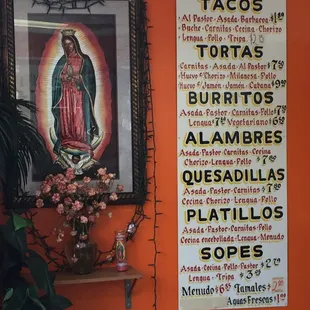 TACOS
Al Pastor - Asada - Barbacoa
Buche - Carnitas - Cecina - Chorizo
Lengua - Pollo - Tripa
TORTAS
Carnitas - Asada - Al Pastor $7
Huevo c/ Chorizo - Milanesa - Pollo
Huevo c/ Jamon - Jamon - Cubana $9
BURRITOS
Asada - Pastor - Carnitas - Pollo $7
Lengua $7 Vegetariano $6
ALAMBRES
Asada - Pastor - Carnitas - Cecina
Chorizo - Lengua - Pollo $7
QUESADILLAS
Asada - Pastor - Carnitas $7
Cecina - Chorizo - Lengua - Pollo
PLATILLOS
Asada - Pastor - Carnitas - Pollo
Cecina encebollada - Lengua - Menudo
SOPES
Asada - Cecina - Pollo - Pastor $2
Lengua - Tripa $3
Menudo $6 Tamales $2
Aguas Frescas $1